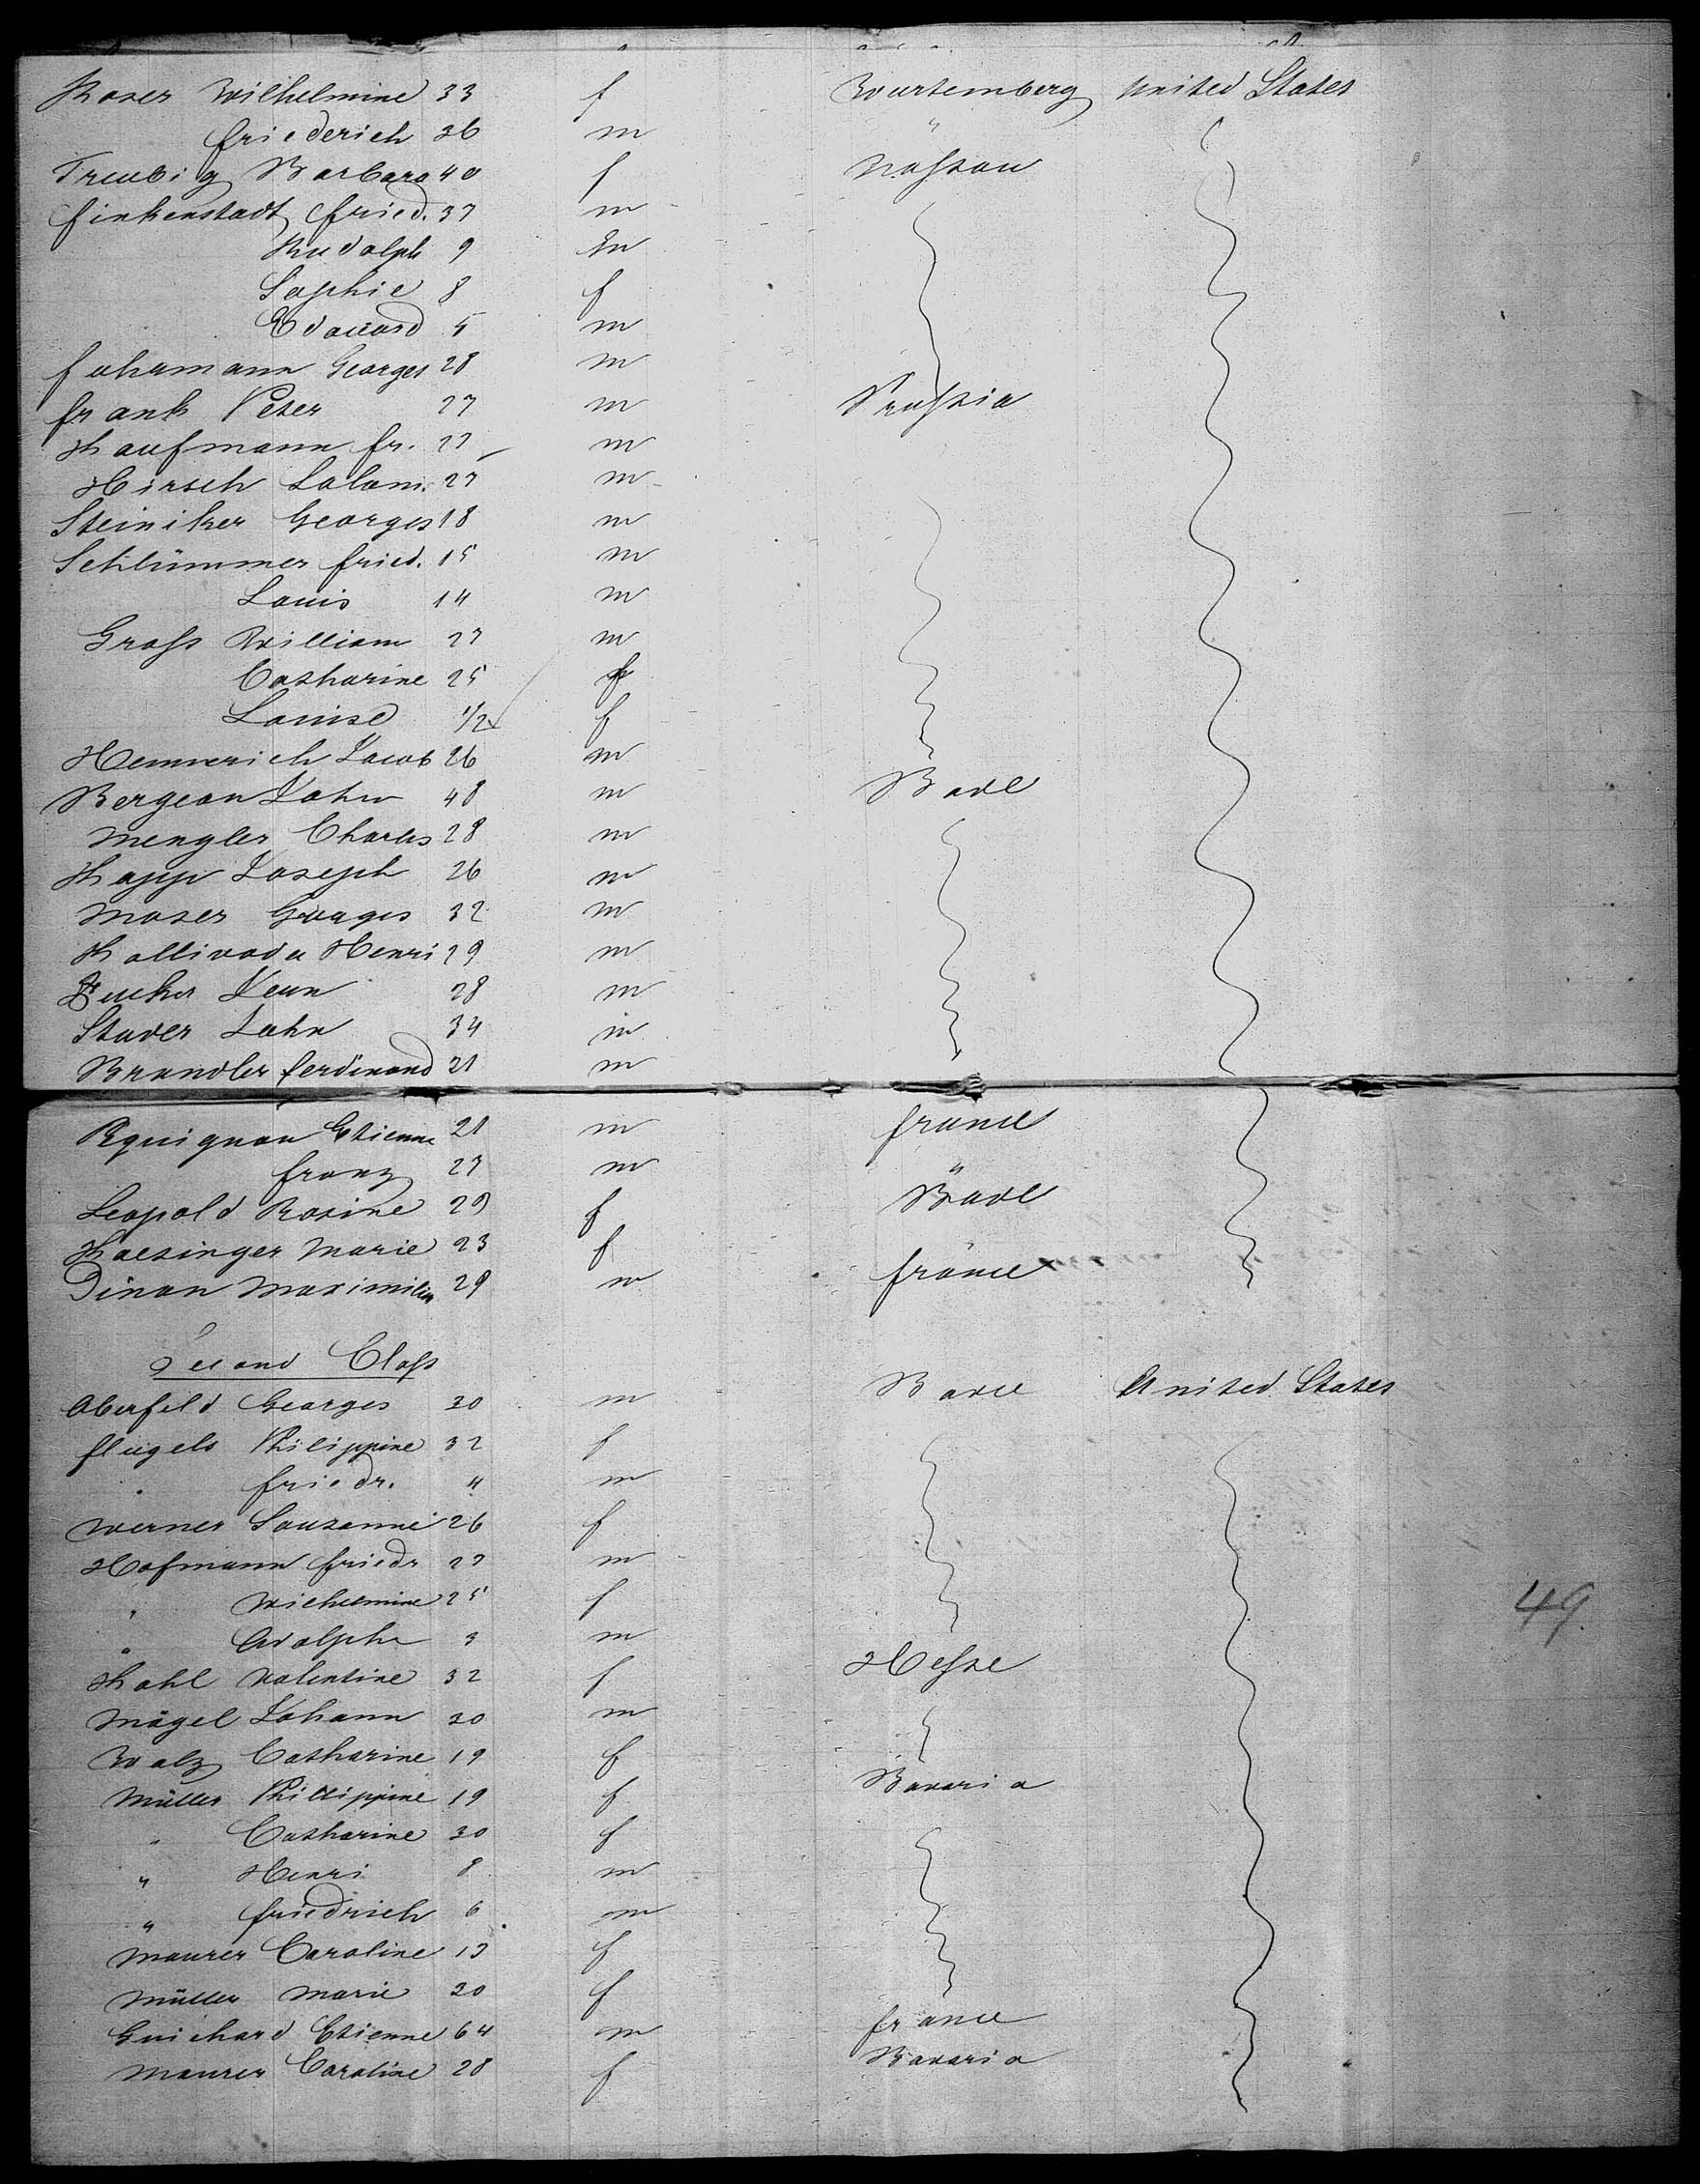 Moser Wilhelmine 33 f Wurtemberg United States
Friederich 36 m "
Treubig Barbara 40 f Nassau
Finkenstadt Fried. 37 m
Rudolph 9 m
Sophie 8 f
Edouard 5 m
Fuhrmann Georges 28 m
Frank Peter 27 m Prussia
Kaufmann Fr. 27 m
Hirsch Salom. 27 m
Steiniker Georges 18 m
Schlümmer Fried. 15 m
Louis 14 m
Gross William 27 m
Catharine 25 f
Louise 1/2 f
Hemmerich Jacob 26 m
Bergean John 48 m Bade
Mengler Charles 28 m
Kapp Joseph 26 m
Moser Georges 32 m
Kallivoda Henri 29 m
Jean 28 m
Stader John 34 m
Brandler Ferdinand 21 m
Pequignon Etienne 21 m France
Franz 27 m "
Leopold Rosine 29 f Bade
Kaesinger Marie 23 f
Dinan Maximilien 29 m France
Second Class
Oberfeld Georges 30 m Bade United States
Flugels Philippine 32 f
Friedr. " m
Werner Souzanne 26 f
Hofmann Friedr 27 m
" Wilhelmine 25 f
" Adolphe 3 m
Kahl Valentine 32 f Hesse
Mägel Johann 30 m
Walz Catharine 19 f
Müller Phillippine 19 f Bavaria
" Catharine 30 f
" Henri 8 m
" Friedrich 6 m
Maurer Caroline 19 f
Müller Marie 20 f
Guichard Etienne 64 m France
Maurer Caroline 28 f Bavaria
49.